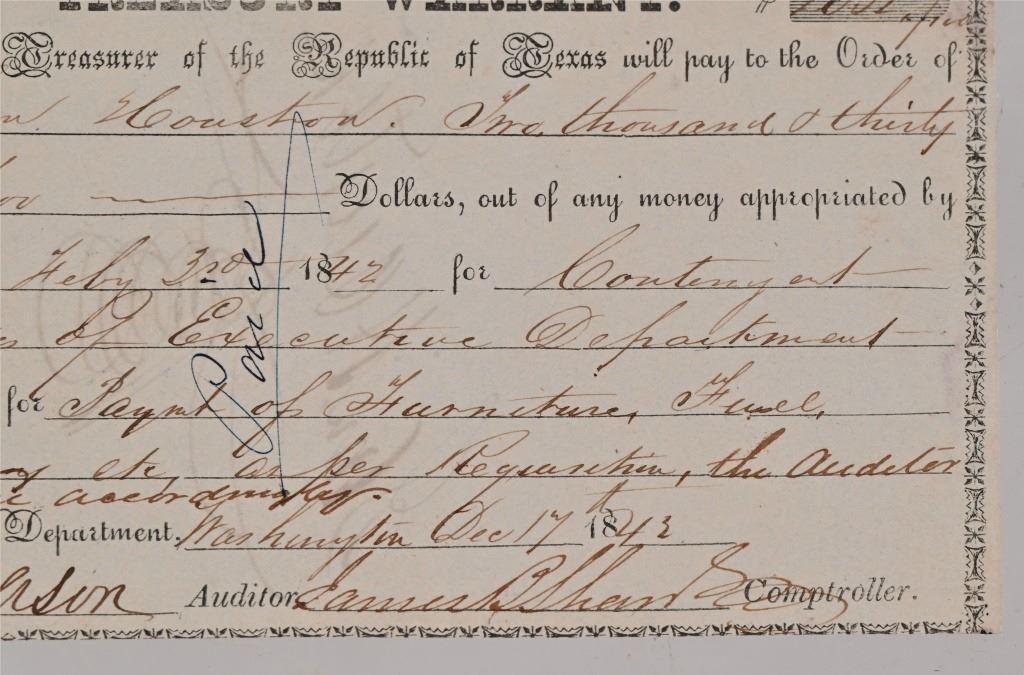 TREASURY WARRANT.
Treasurer of the Republic of Texas will pay to the Order of
Houston. Two thousand & thirty
Dollars, out of any money appropriated by
Feby 3rd 1842 for Contengent
of Executive Department
for Paymt of Furniture, Fuel,
etc, as per Requisition, the Auditor
accordingly.
Department. Washington Dec 17th 1843
Auditor James B Shaw Comptroller.
Paid